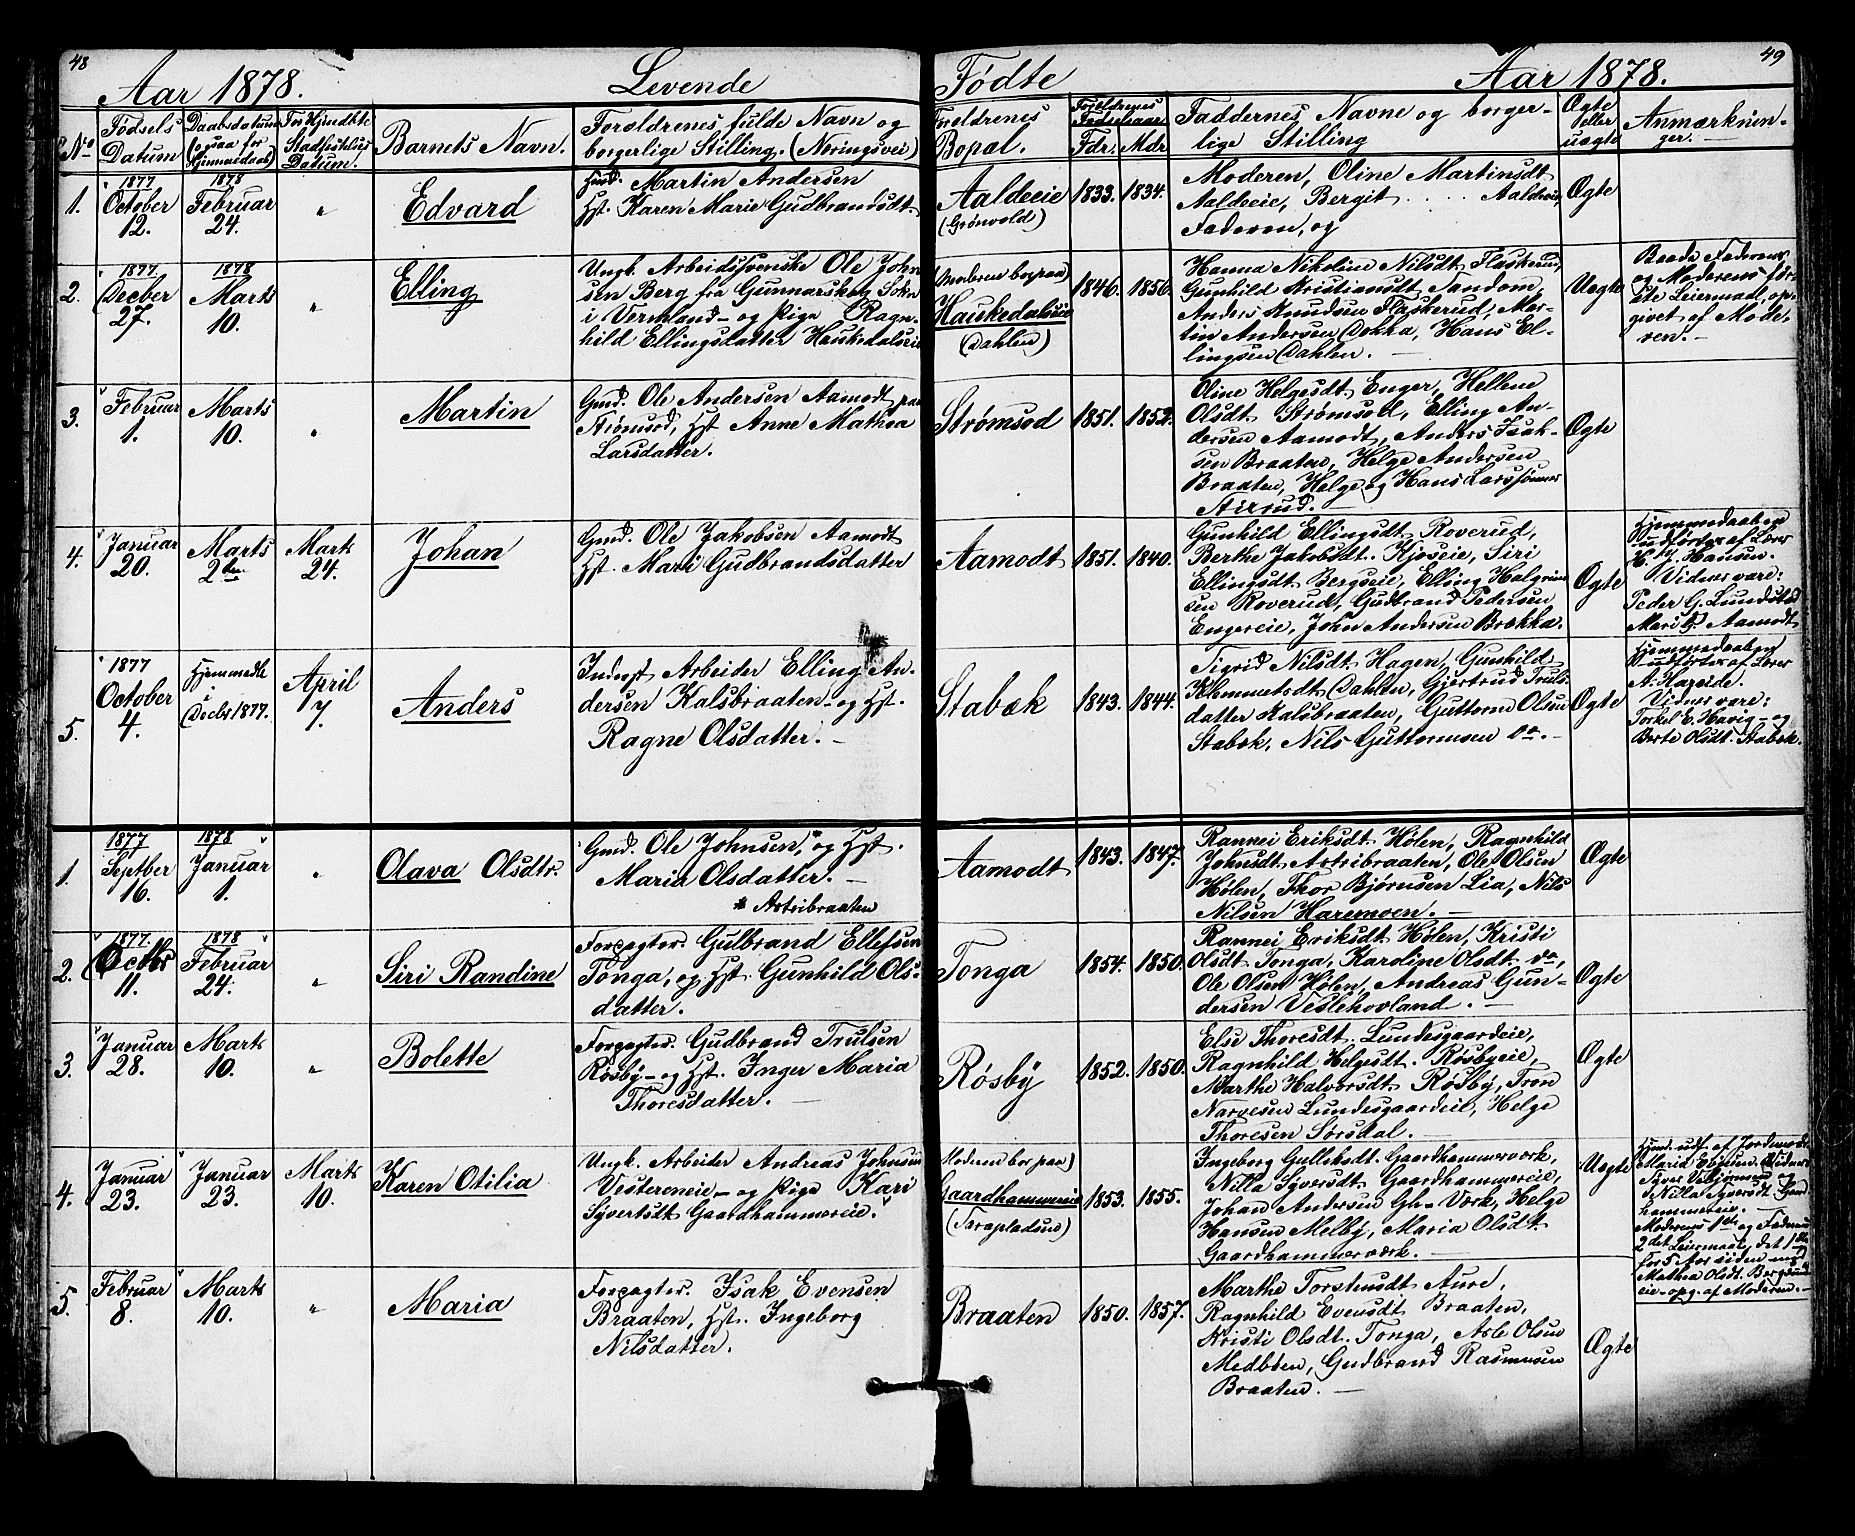 48
Aar 1878. Levende
Fødte Aar 1878.
49
No
Fødsels
Datum
Daabsdatum
(ogsaa for
Hjemmedaab)
Stadfæstelses
Datum.
Barnets Navn.
Forældrenes fulde Navn og
borgerlige Stilling. (Næringsvei)
Forældrenes
Bopæl.
Forældrenes
Fødselsaar
Fdr. Mdr.
Faddernes Navne og borger-
lige Stilling
Ægte
eller
uægte
Anmærknin-
ger.
1.
1877
October
12.
1878
Februar
24.
"
Edvard
Hmd. Martin Andersen
Hst. Karen Marie Gudbrandsdt.
Aaldeeie
(Grønvold)
1833. 1834.
Moderen, Oline Martinsdt
Aaldeeie, Bergit ..... Aaldeeie,
Faderen, og
Ægte
2.
1877
Decber
27.
1878
Marts
10.
"
Elling
Ungk. Arbeidssvenske Ole John
sen Berg fra Gunnarskog Sokn
i Vermland – og Pige Ragn-
hild Ellingsdatter Haukedalseie
(Moderen bor paa)
Haukedalseie
(Dahlen)
1846. 1856.
Hanna Nikoline Nilsdt. Flaskerud,
Gunhild Kristiansdt. Sandom,
Anders Knudsen Flaskerud, Mar-
tin Andersen Dokka, Hans El-
lingsen Dahlen. –
Uægte
Baade Faderens
og Moderens før-
ste Leiermaal, op-
givet af Mode-
ren. –
3.
Februar
1.
Marts
10.
"
Martin
Gmd. Ole Andersen Aamodt paa
Strømsod, Hst Anne Mathea
Larsdatter.
Strømsod
1851. 1852.
Oline Helgesdt. Enger, Hellene
Olsdt. Strømsod, Elling An-
dersen Aamodt, Anders Isak-
sen Braaten, Helge Andersen
Braaten, Helge og Hans Larssønner
Ægte
4.
Januar
20.
Marts
2den
Marts
24.
Johan
Gmd. Ole Jakobsen Aamodt
Hst. Mari Gudbrandsdatter
Aamodt
1851. 1840.
Gunhild Ellingsdt. Roverud,
Berthe Jakobsdt. Kjoseie, Siri
Ellingsdt. Bergseie, Elling Halgrim
sen Roverud, Gudbrand Pedersen
Engereie, John Andersen Brækka.
Ægte
Hjemmedaaben
udført af Lærer
H. J. Hansen.
Vidner vare:
Peder G. Lundstad
Mari G. Aamodt
5.
1877
October
4.
Hjemmedbt.
i
Decbr 1877.
April
7.
Anders
Inderst Arbeider Elling An-
dersen Kalsbraaten – og Hst.
Ragne Olsdatter. –
Stabæk
1843. 1844.
Sigrid Nilsdt. Hagen, Gunhild
Klemmetsdt. Dahlen, Gjertrud Truls-
datter Kalsbraaten, Guttorm Olsen
Stabæk, Nils Guttormsen do. –
Ægte
Hjemmedaaben
udført af Lærer
A. Hareide.
Vidner vare:
Torkel E. Havig – og
Berte Olsdt. Stabæk.
1.
1877
Septber
16.
1878
Januar
1.
"
Olava Olsdtr.
Gmd. Ole Johnsen,* og Hst.
Maria Olsdatter. –
* Astribraaten
Aamodt
1843. 1847.
Rannei Eriksdt. Hølen, Ragnhild
Johnsdt. Astribraaten, Ole Olsen
Hølen, Thor Bjørnsen Lia, Nils
Nilsen Haremoen. –
Ægte
2.
1877.
11.
1878
Februar
24.
"
Siri Randine
Forpagter. Gulbrand Ellefsen
Tonga, og Hst Gunhild Ols-
datter.
Tonga
1854. 1850.
Rannei Eriksdt. Hølen, Kristi
Olsdt. Tonga, Karoline Olsdt. do,
Ole Olsen Hølen, Andreas Gun-
dersen Veslehovland. –
Ægte
3.
Januar
28.
Marts
10.
"
Bolette
Forpagter. Gudbrand Trulsen
Røsby – og Hst. Inger Maria
Thoresdatter. –
Røsby
1852. 1850.
Else Thoresdt. Lundesgaardeie,
Ragnhild Helgesdt. Røsbyeie,
Marthe Halvorsdt. Røsby, Tron
Narvesen Lundesgaardeie, Helge
Thoresen Sørsdal. –
Ægte
4.
Januar
23.
Januar
23.
Marts
10.
Karen Otilia
Ungk. Arbeider Andreas Johnsen
Vestereneie – og Pige Kari
Syvertsdt. Gaardhammereie.
Moderen bor paa)
Gaardhammereie
1853. 1855.
Ingeborg Gulliksdt. Gaardhammerværk,
Nilla Syversdt. Gaardhammereie,
Johan Andersen Gh-Værk, Helge
Hansen Melby, Maria Olsdt.
Gaardhammerværk. –
Uægte
Hjmd. udf. af Jordemoder
Nilla Syversdt. Gaard-
hammereie. –
Moderens 1ste og Faderens
2det Leiermaal, det 1ste
for 5 Aar siden med
Mathea Olsdt. Bergsrud-
eie – opg. af Moderen. –
5.
Februar
8.
Marts
10.
"
Maria
Forpagter. Isak Evensen
Braaten, Hst. Ingeborg
Nilsdatter.
Braaten
1850. 1857.
Marthe Torstensdt Aure,
Ragnhild Evensdt. Braaten,
Kristi Olsdt. Tonga, Asle Olsen
Medbøen, Gudbrand Rasmusen
Braaten. –
Ægte